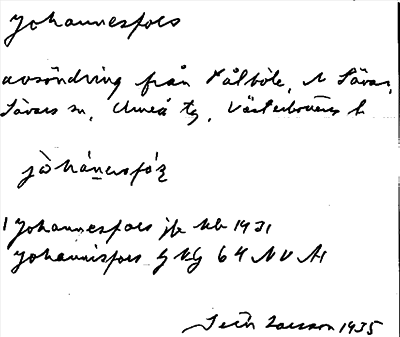 Johannesfors
avsöndring från Pålböle, N Sävar,
Sävars sn, Umeå tg, Västerbottens l.
Johannesfors jb kb 1931
Johannisfors G kg 64 NV
Larsson 1935